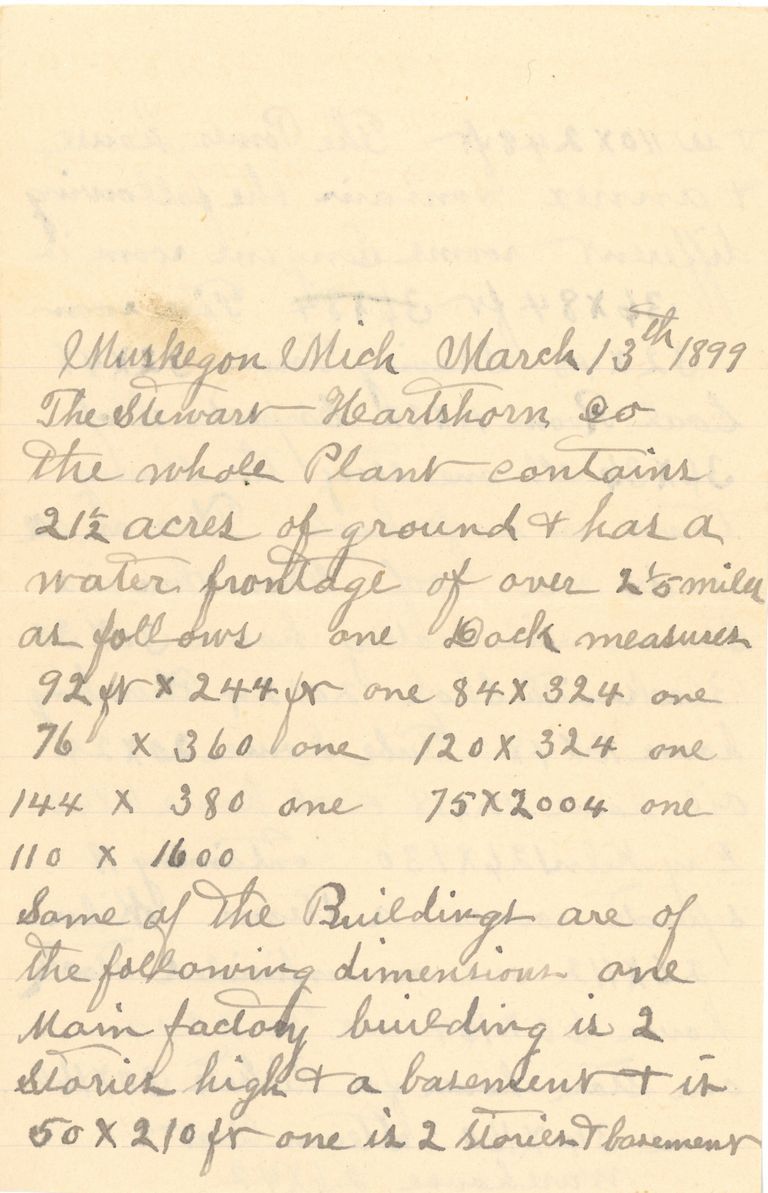 Muskegon Mich March 13th 1899
The Stewart Heartshorn Co
the whole Plant contains
21½ acres of ground & has a
water frontage of over 2⅕ miles
as follows one Dock measures
92 ft x 244 ft one 84 X 324 one
76 x 360 one 120 X 324 one
144 x 380 one 75 X 2004 one
110 x 1600
Some of the Buildings are of
the following dimensions one
Main factory building is 2
Stories high & a basement & is
50 X 210 ft one is 2 stories & basement